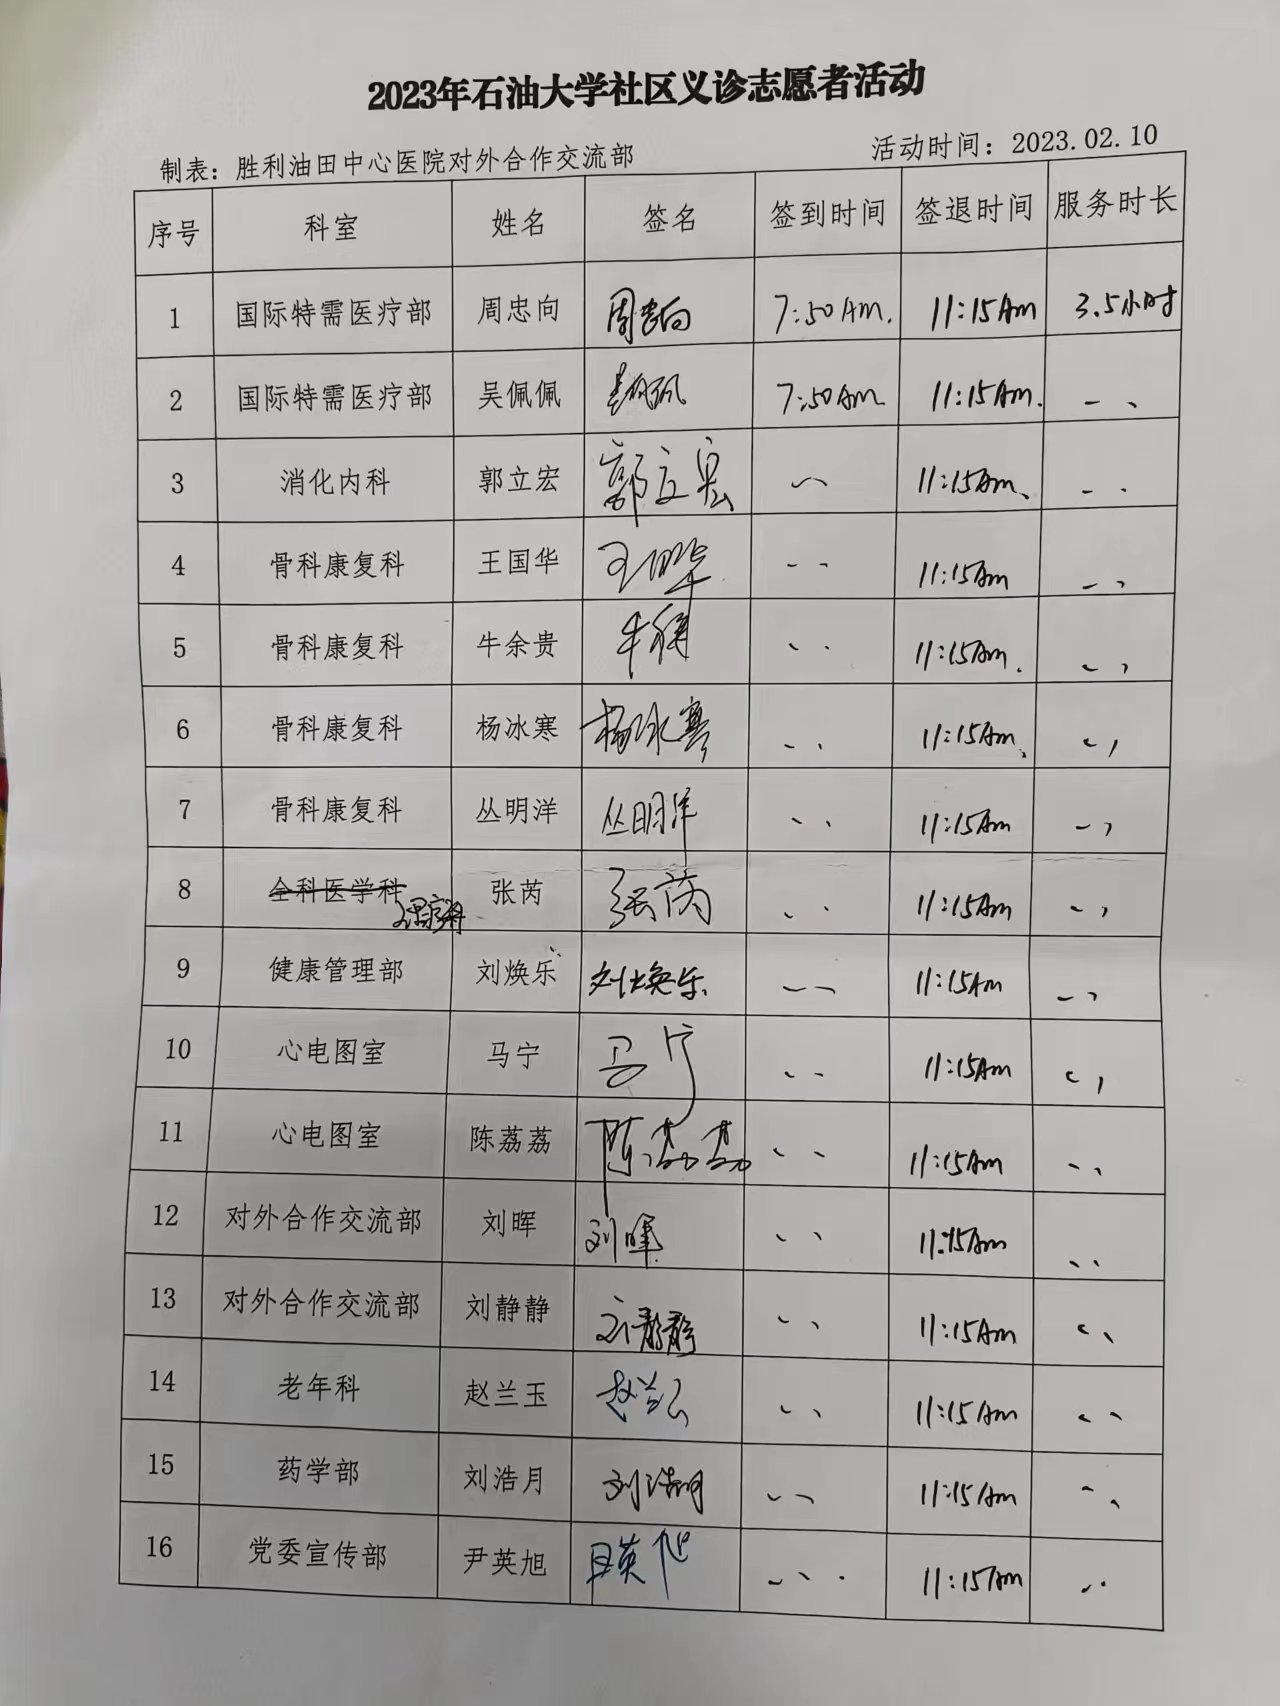 2023年石油大学社区义诊志愿者活动
制表：胜利油田中心医院对外合作交流部 活动时间：2023.02.10
序号 科室 姓名 签名 签到时间 签退时间 服务时长
1 国际特需医疗部 周忠向 周忠向 7:50AM. 11:15Am 3.5小时
2 国际特需医疗部 吴佩佩 吴佩佩 7:50Am 11:15Am.
3 消化内科 郭立宏 郭立宏 11:15Am、
4 骨科康复科 王国华 王国华 11:15Am
5 骨科康复科 牛余贵 11:15Am.
6 骨科康复科 杨冰寒 杨冰寒 11:15Am、
7 骨科康复科 丛明洋 丛明洋 11:15Am
8 全科医学科 张芮 张芮 11:15Am
9 健康管理部 刘焕乐 刘焕乐 11:15Am
10 心电图室 马宁 马宁 11:15Am
11 心电图室 陈荔荔 陈荔荔 11:15Am
12 对外合作交流部 刘晖 刘晖 11:15Am
13 对外合作交流部 刘静静 刘静静 11:15Am
14 老年科 赵兰玉 赵兰玉 11:15Am
15 药学部 刘浩月 刘浩月 11:15Am
16 党委宣传部 尹英旭 尹英旭 11:15Am